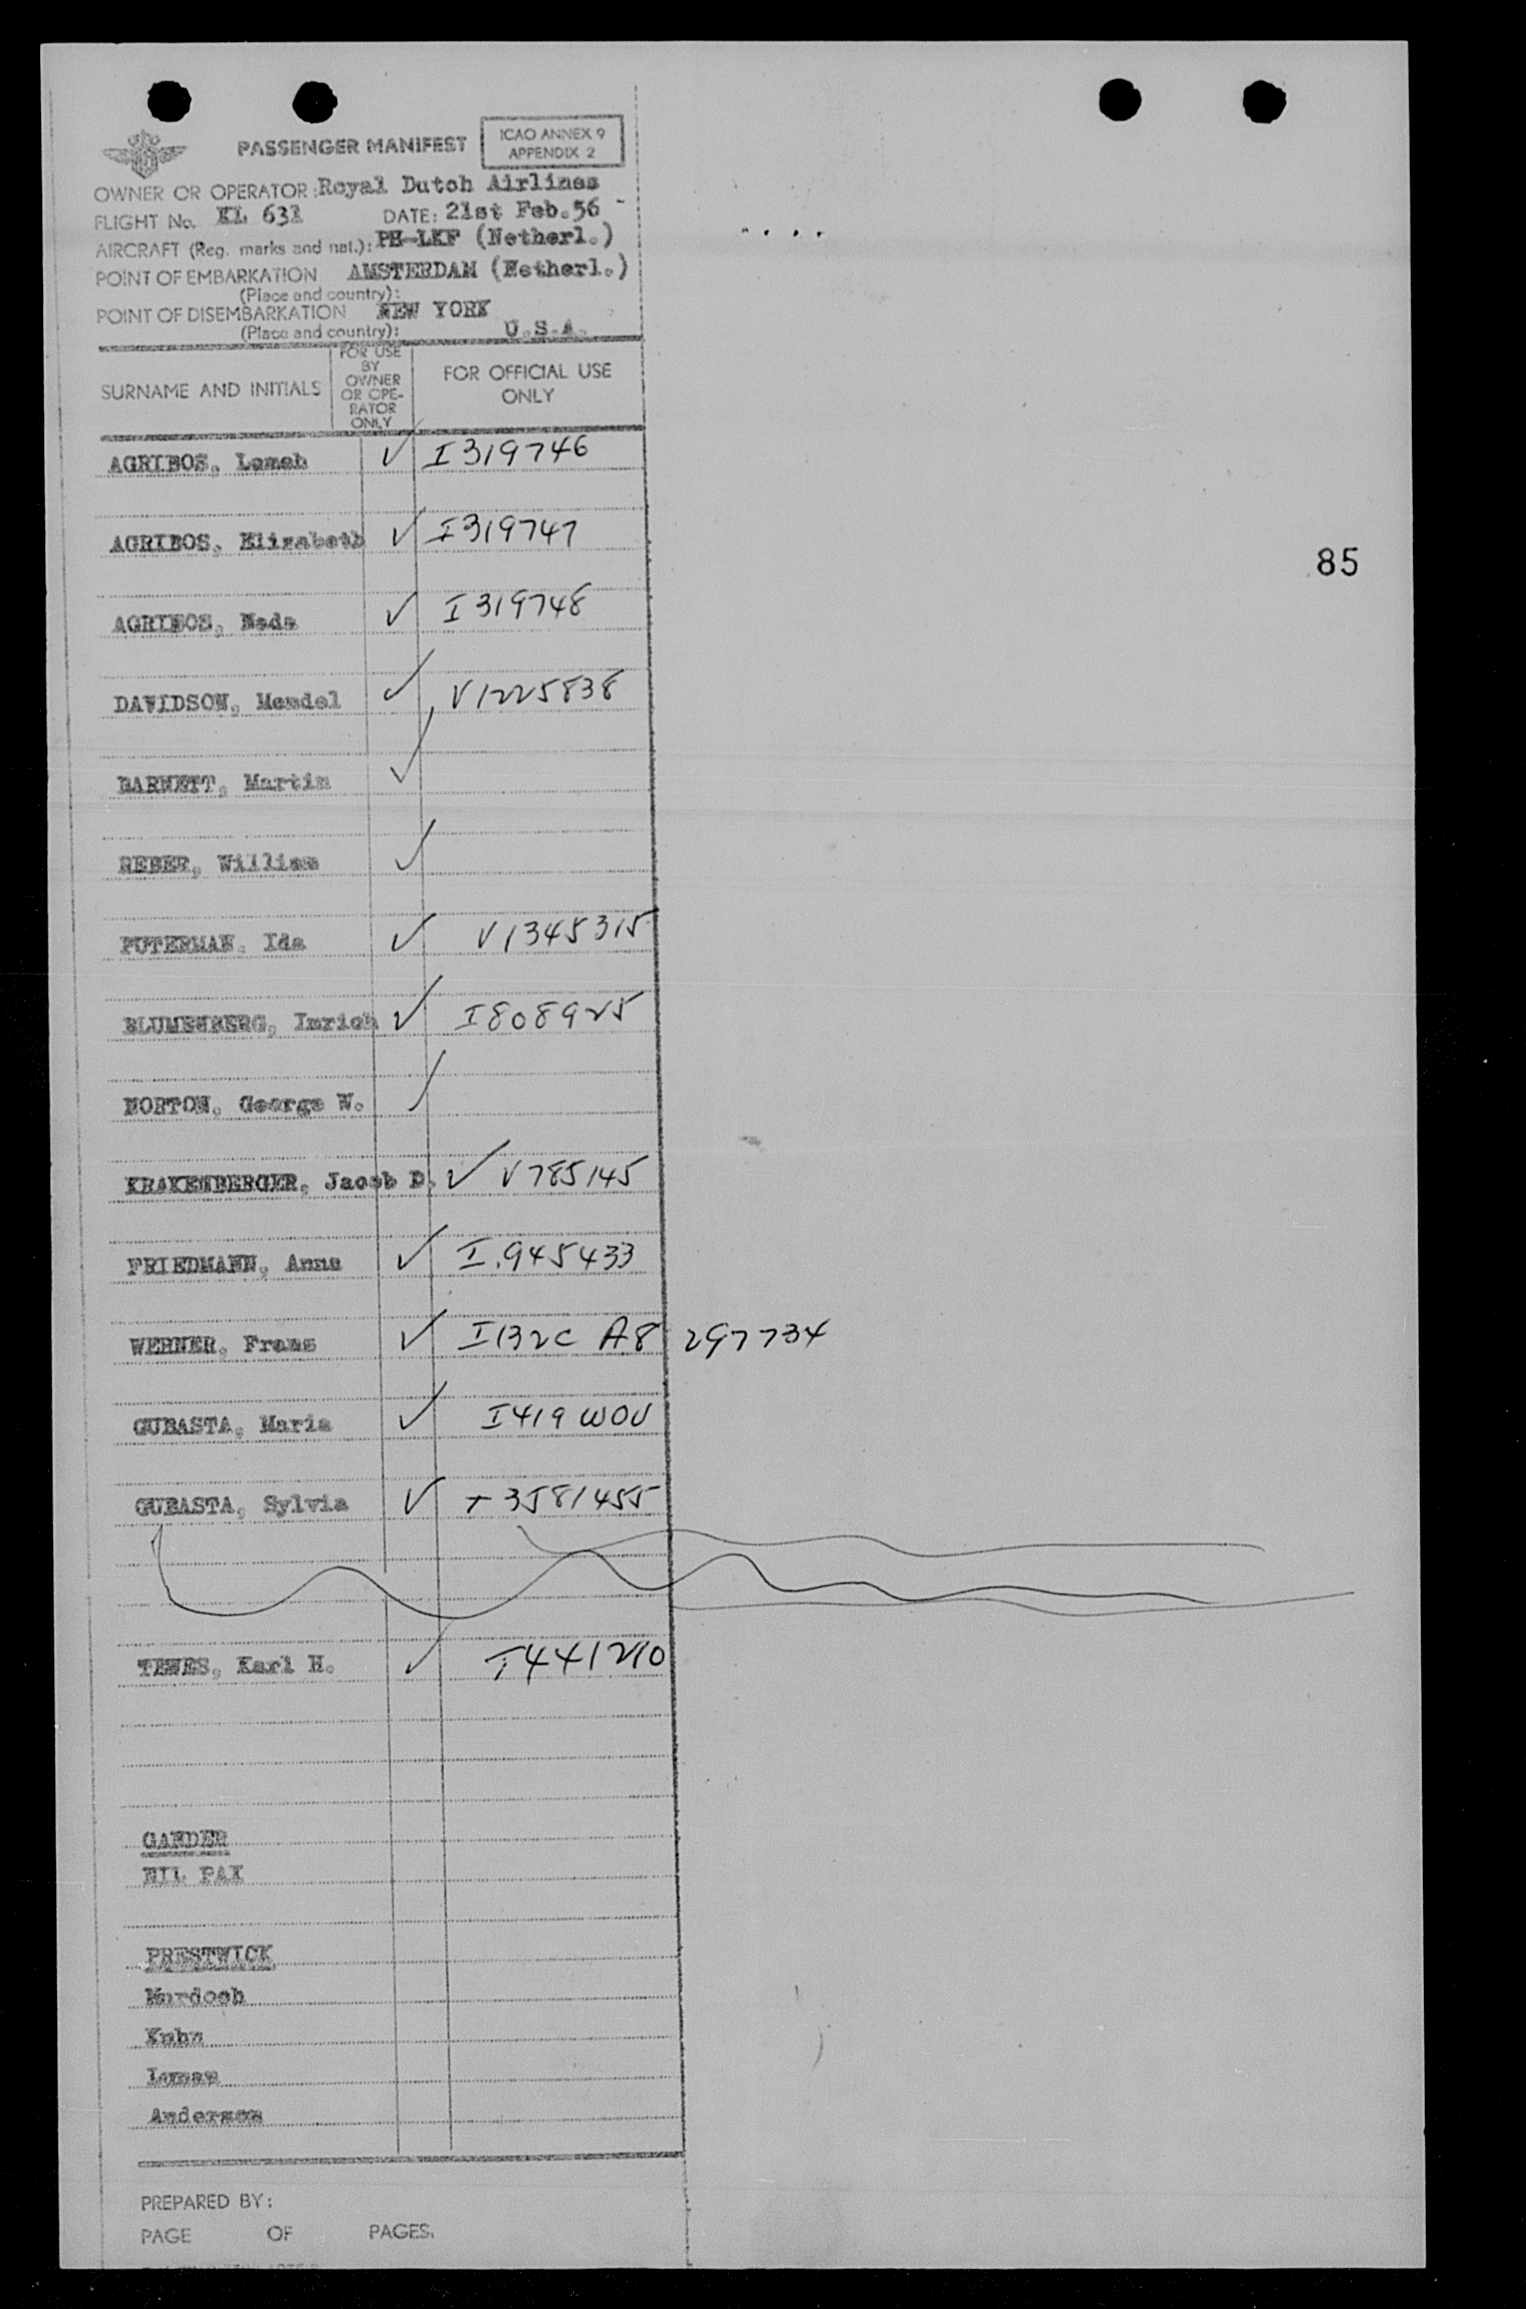 PASSENGER MANIFEST
ICAO ANNEX 9
APPENDIX 2
OWNER OR OPERATOR: Royal Dutch Airlines
FLIGHT No. KL 631 DATE: 21st Feb. 56
AIRCRAFT (Reg. marks and nat.): PH-LKF (Netherl.)
POINT OF EMBARKATION AMSTERDAM (Netherl.)
(Place and country):
POINT OF DISEMBARKATION NEW YORK
(Place and country): U.S.A.
SURNAME AND INITIALS
FOR USE
BY
OWNER
OR OPE-
RATOR
ONLY
FOR OFFICIAL USE
ONLY
AGRIBOS, ✓ I319746
AGRIBOS, Elizabeth ✓ I319747
85
AGRIBOS, Neda ✓ I319748
DAVIDSON, Mendel ✓ V1225838
BARNETT, Martin ✓
REBER, William ✓
PUTERMAN, Ida ✓ V1345315
BLUMENBERG, Imrich ✓ I808925
NORTON, George W. ✓
KRAKENBERGER, Jacob D. ✓ V785145
FRIEDMANN, Anna ✓ I.945433
WERNER, Frans ✓ I132C A8 297734
GUBASTA, Maria ✓ I419 WOV
GUBASTA, Sylvia ✓ 3581455
TEWES, Karl H. ✓ I441210
GANDER
NIL PAX
PRESTWICK
Murdoch
Kuhn
Lomas
Anderson
PREPARED BY:
PAGE OF PAGES.